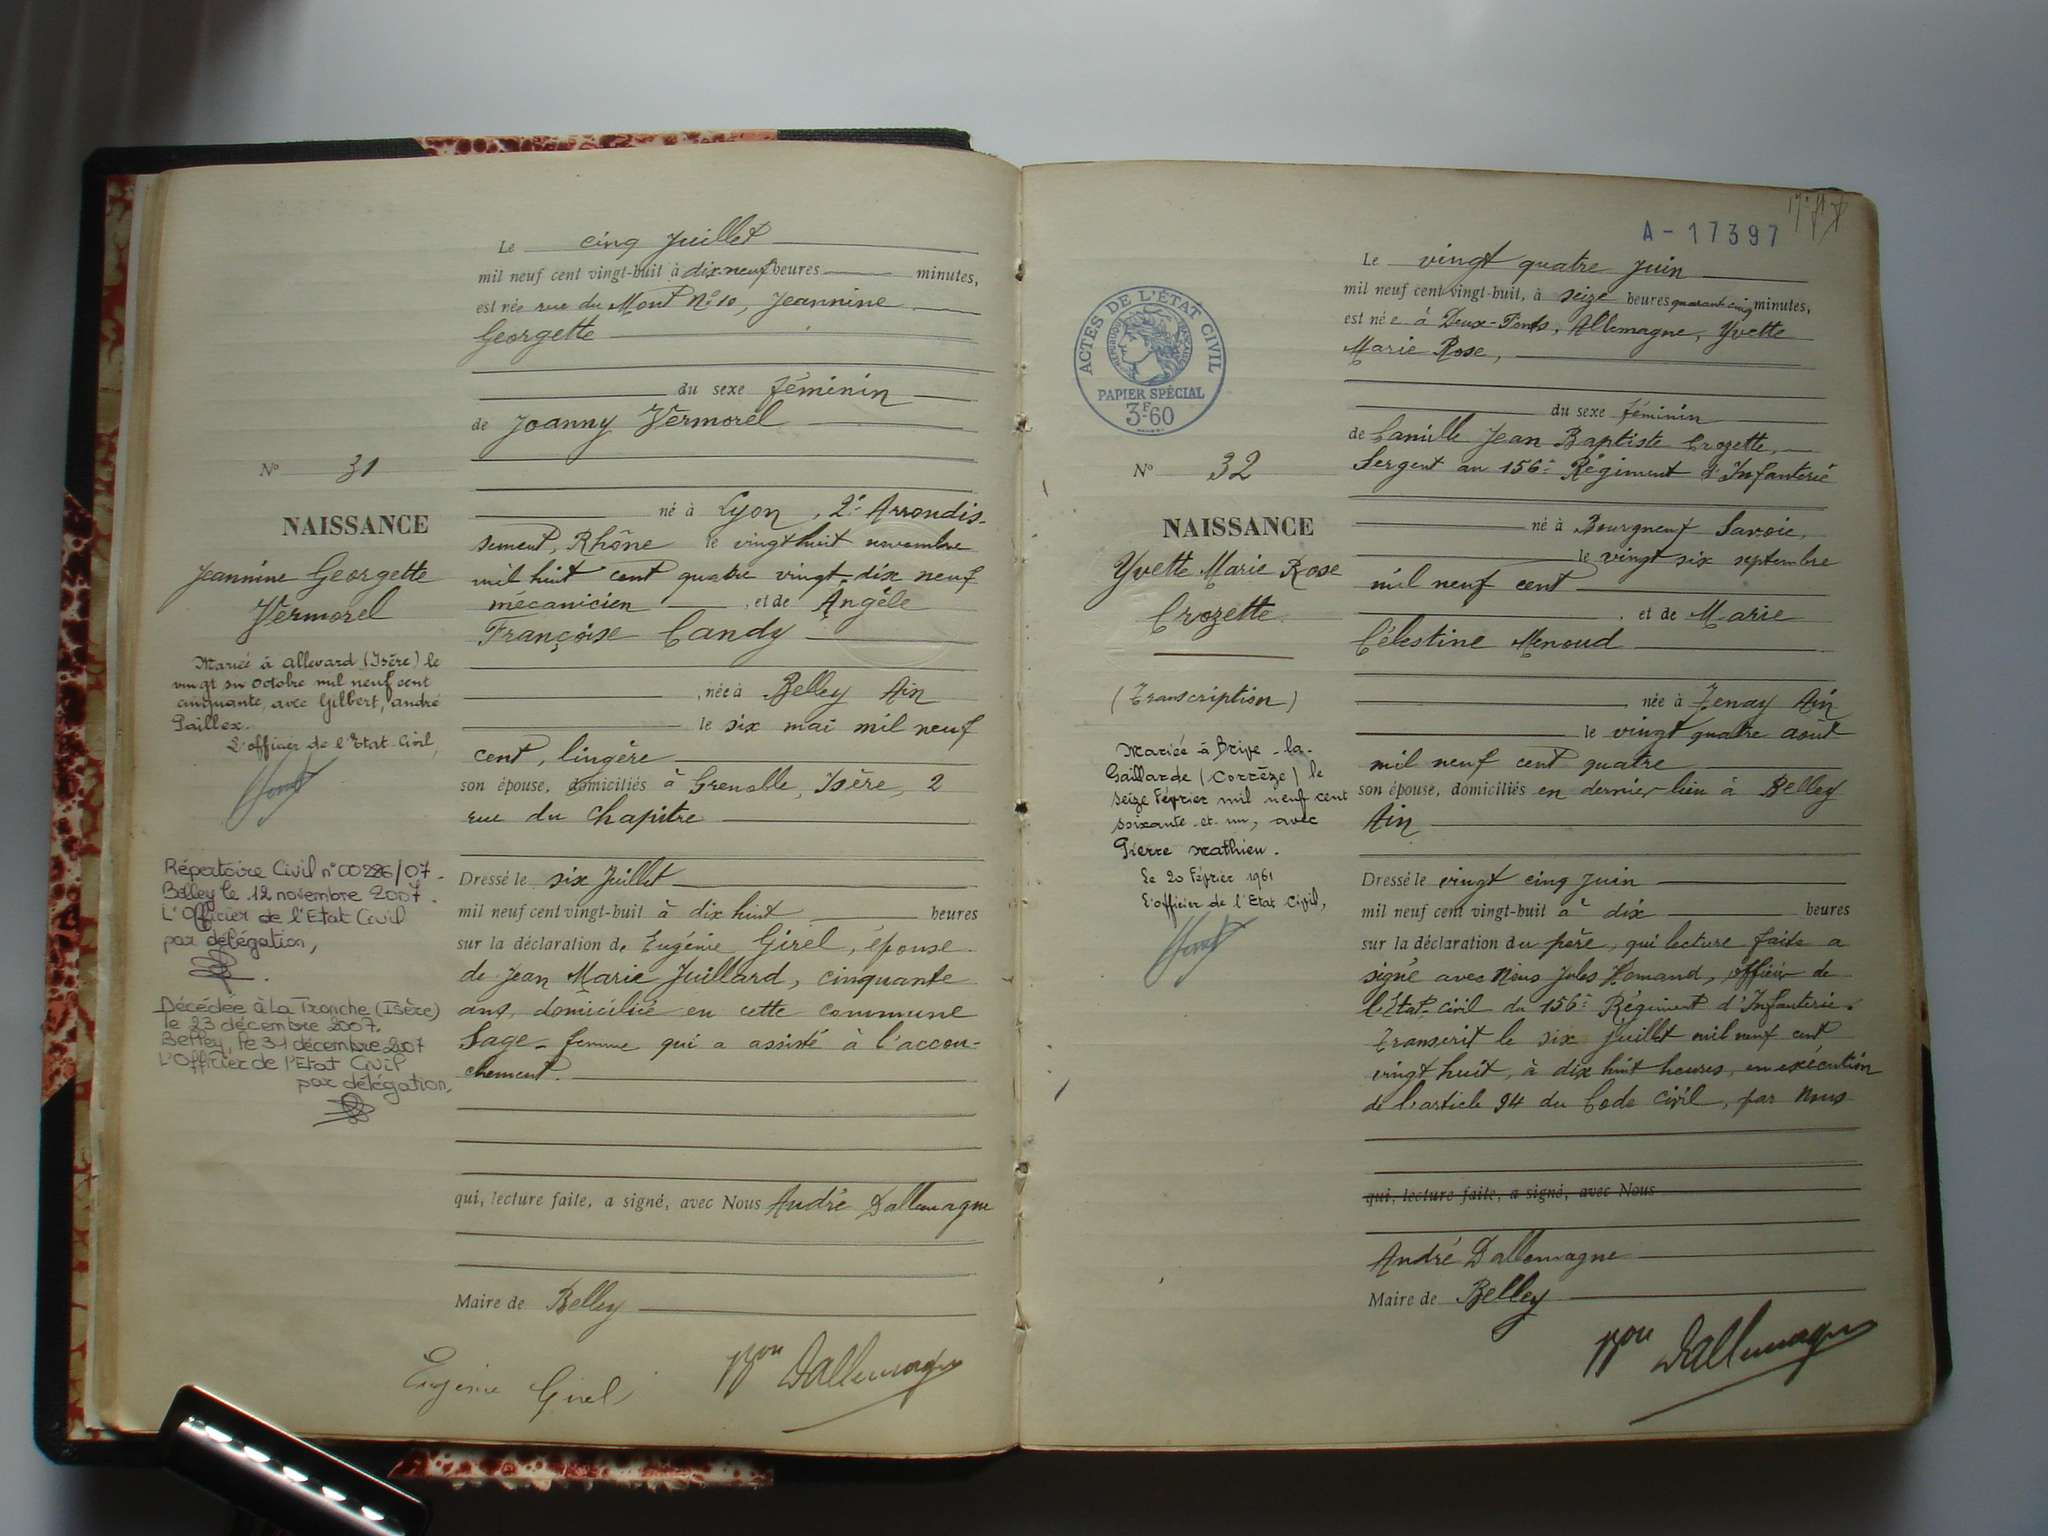 Le cinq Juillet
mil neuf cent vingt-huit à dix-neuf heures minutes,
est née rue du Mont N° 10, Jeannine
Georgette
du sexe féminin
de Joanny Vermorel
N° 31
né à Lyon, 2e Arrondis-
sement, Rhône le vingt huit novembre
mil huit cent quatre vingt-dix neuf
mécanicien, et de Angèle
Françoise Candy
née à Belley Ain
le six mai mil neuf
cent, lingère
son épouse, domiciliés à Grenoble, Isère, 2
rue du Chapitre
NAISSANCE
Jeannine Georgette
Vermorel
Mariée à Allevard (Isère) le
vingt un Octobre mil neuf cent
cinquante, avec Gilbert, André
Paillex.
L'officier de l'Etat-Civil,
Répertoire Civil n° 00226/07.
Belley le 12 novembre 2007.
L'Officier de l'Etat Civil
par délégation,
Décédée à La Tronche (Isère)
le 23 décembre 2007.
Belley, le 31 décembre 2007
L'Officier de l'Etat Civil
par délégation,
Dressé le six Juillet
mil neuf cent vingt-huit à dix huit heures
sur la déclaration de Eugénie Girel, épouse
de Jean Marie Juillard, cinquante
ans, domiciliée en cette commune
Sage-femme qui a assisté à l'accou-
chement.
qui, lecture faite, a signé, avec Nous André Dallemagne
Maire de Belley
Eugénie Girel
Dallemagne
A-17397
Le vingt quatre Juin
mil neuf cent vingt-huit, à seize heures quarante cinq minutes,
est née à Deux-Ponts, Allemagne, Yvette
Marie Rose,
ACTES DE L'ÉTAT CIVIL
RÉPUBLIQUE FRANÇAISE
PAPIER SPÉCIAL
3F60
du sexe féminin
de Camille Jean Baptiste Crozette,
Sergent au 156e Régiment d'Infanterie
N° 32
né à Bourgneuf Savoie,
le vingt six septembre
mil neuf cent
et de Marie
Célestine Menoud
née à Tenay Ain
le vingt quatre août
mil neuf cent quatre
son épouse, domiciliés en dernier lieu à Belley
Ain
NAISSANCE
Yvette Marie Rose
Crozette
(Transcription)
Mariée à Brive-la-
Gaillarde (Corrèze) le
seize Février mil neuf cent
soixante et un, avec
Pierre Mathieu.
Le 20 Février 1961
L'officier de l'Etat Civil,
Dressé le vingt cinq Juin
mil neuf cent vingt-huit à dix heures
sur la déclaration du père, qui lecture faite a
signé avec Nous Jules Homand, officier de
l'Etat-civil du 156e Régiment d'Infanterie.
Transcrit le six Juillet mil neuf cent
vingt huit, à dix huit heures, en exécution
de l'article 94 du Code Civil, par Nous
qui, lecture faite, a signé, avec Nous
André Dallemagne
Maire de Belley
Dallemagne